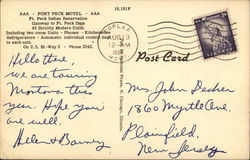 AAA - FORT PECK MOTEL - AAA
Ft. Peck Indian Reservation
Gateway to Ft. Peck Dam
45 Strictly Modern Units
Including two room Units - Phones - Kitchenettes
Refrigerators - Automatic individual control heat
in each unit.
On U.S. Hi-Way 2 - Phone 2342.
18,181F
POPLAR
AUG 13
12 -AM
MONT.
Post Card
Hello there,
we are touring
Montana this
year. Hope you
are well.
Helen & Barney
Mrs. John Decker
1860 Myrtle Ave.
Plainfield,
New Jersey